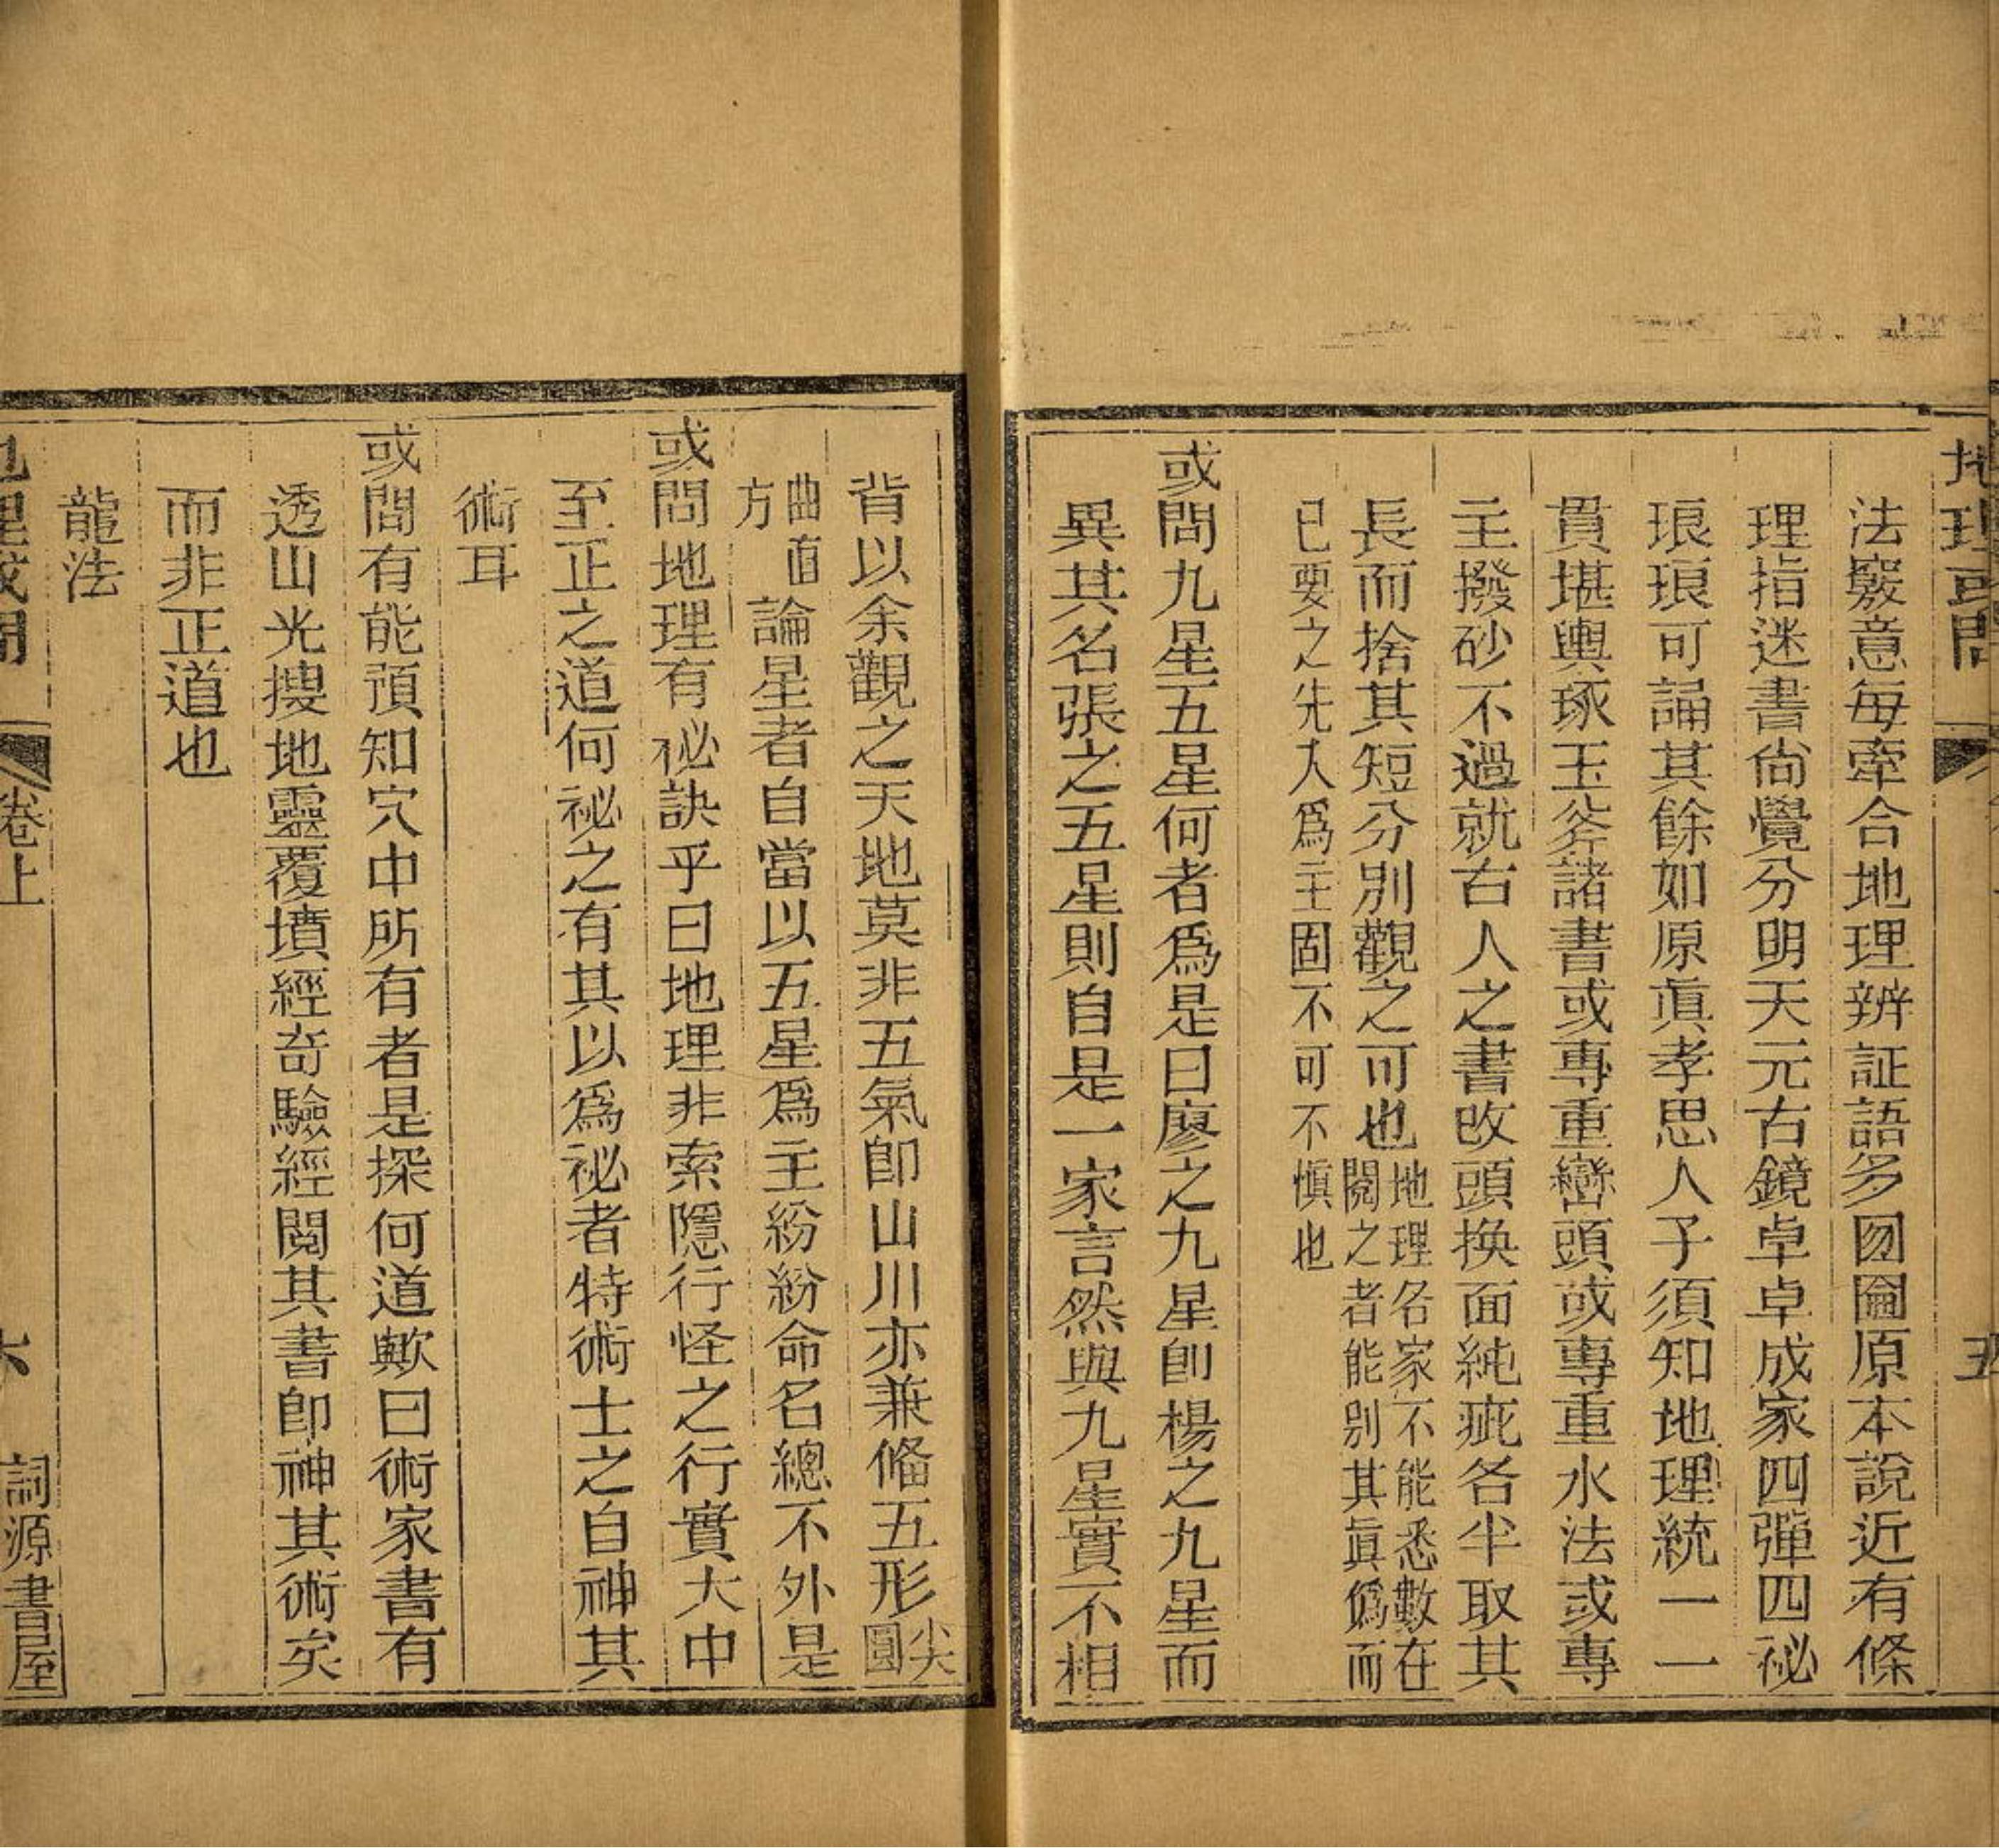 地理或問
五
法竅意每牽合地理辨証語多囫圇原本說近有條
理指迷書尙覺分明天元古鏡卓卓成家四彈四祕
琅琅可誦其餘如原眞孝思人子須知地理統一一
貫堪輿琢玉斧諸書或專重巒頭或專重水法或專
主撥砂不過就古人之書改頭換面純疵各半取其
長而捨其短分別觀之可也地理名家不能悉數在
閱之者能別其眞僞而
已要之先人爲主固不可不愼也
或問九星五星何者爲是曰廖之九星卽楊之九星而
異其名張之五星則自是一家言然與九星實不相
背以余觀之天地莫非五氣卽山川亦兼備五形尖
圓
曲直
方
論星者自當以五星爲主紛紛命名總不外是
或問地理有祕訣乎曰地理非索隱行怪之行實大中
至正之道何祕之有其以爲祕者特術士之自神其
術耳
或問有能預知穴中所有者是探何道歟曰術家書有
透山光搜地靈覆墳經奇驗經閱其書卽神其術矣
而非正道也
龍法
地理或問
卷上
六
詞源書屋